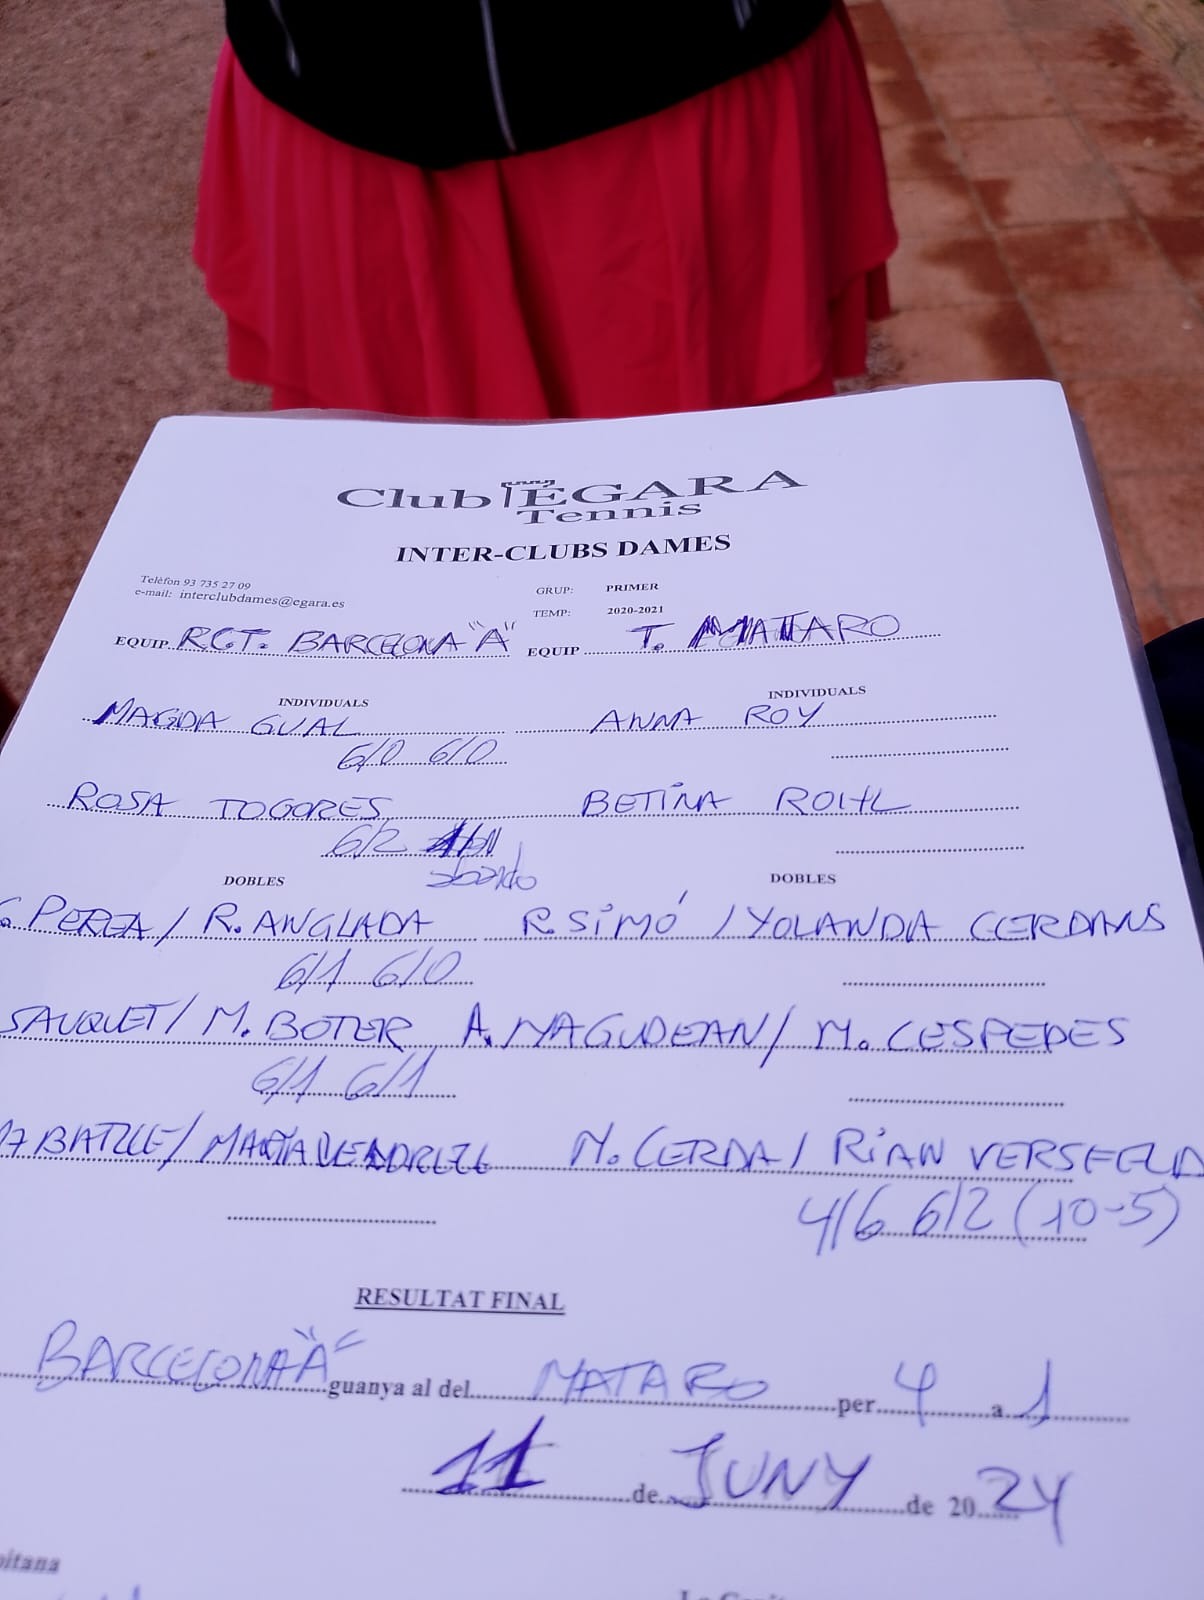 Club ÉGARA
Tennis
INTER-CLUBS DAMES
Telèfon 93 735 27 09
e-mail: interclubdames@egara.es
GRUP: PRIMER
TEMP: 2020-2021
EQUIP RCT. BARCELONA "A" EQUIP T. MATARO
INDIVIDUALS INDIVIDUALS
MAGDA GUAL ANNA ROY
6/0 6/0
ROSA TOGORES BETINA ROIHL
6/2
abando
DOBLES DOBLES
PEREA / R. ANGLADA R. SIMÓ / YOLANDA CERDANS
6/1 6/0
SAUQUET / M. BOTER A. MAGUDEAN / M. CESPEDES
6/1 6/1
BATLLE / MARTA VENDRELL M. CERDA / RIAN VERSFELD
4/6 6/2 (10-5)
RESULTAT FINAL
BARCELONA "A" guanya al del MATARO per 4 a 1
11 de JUNY de 2024